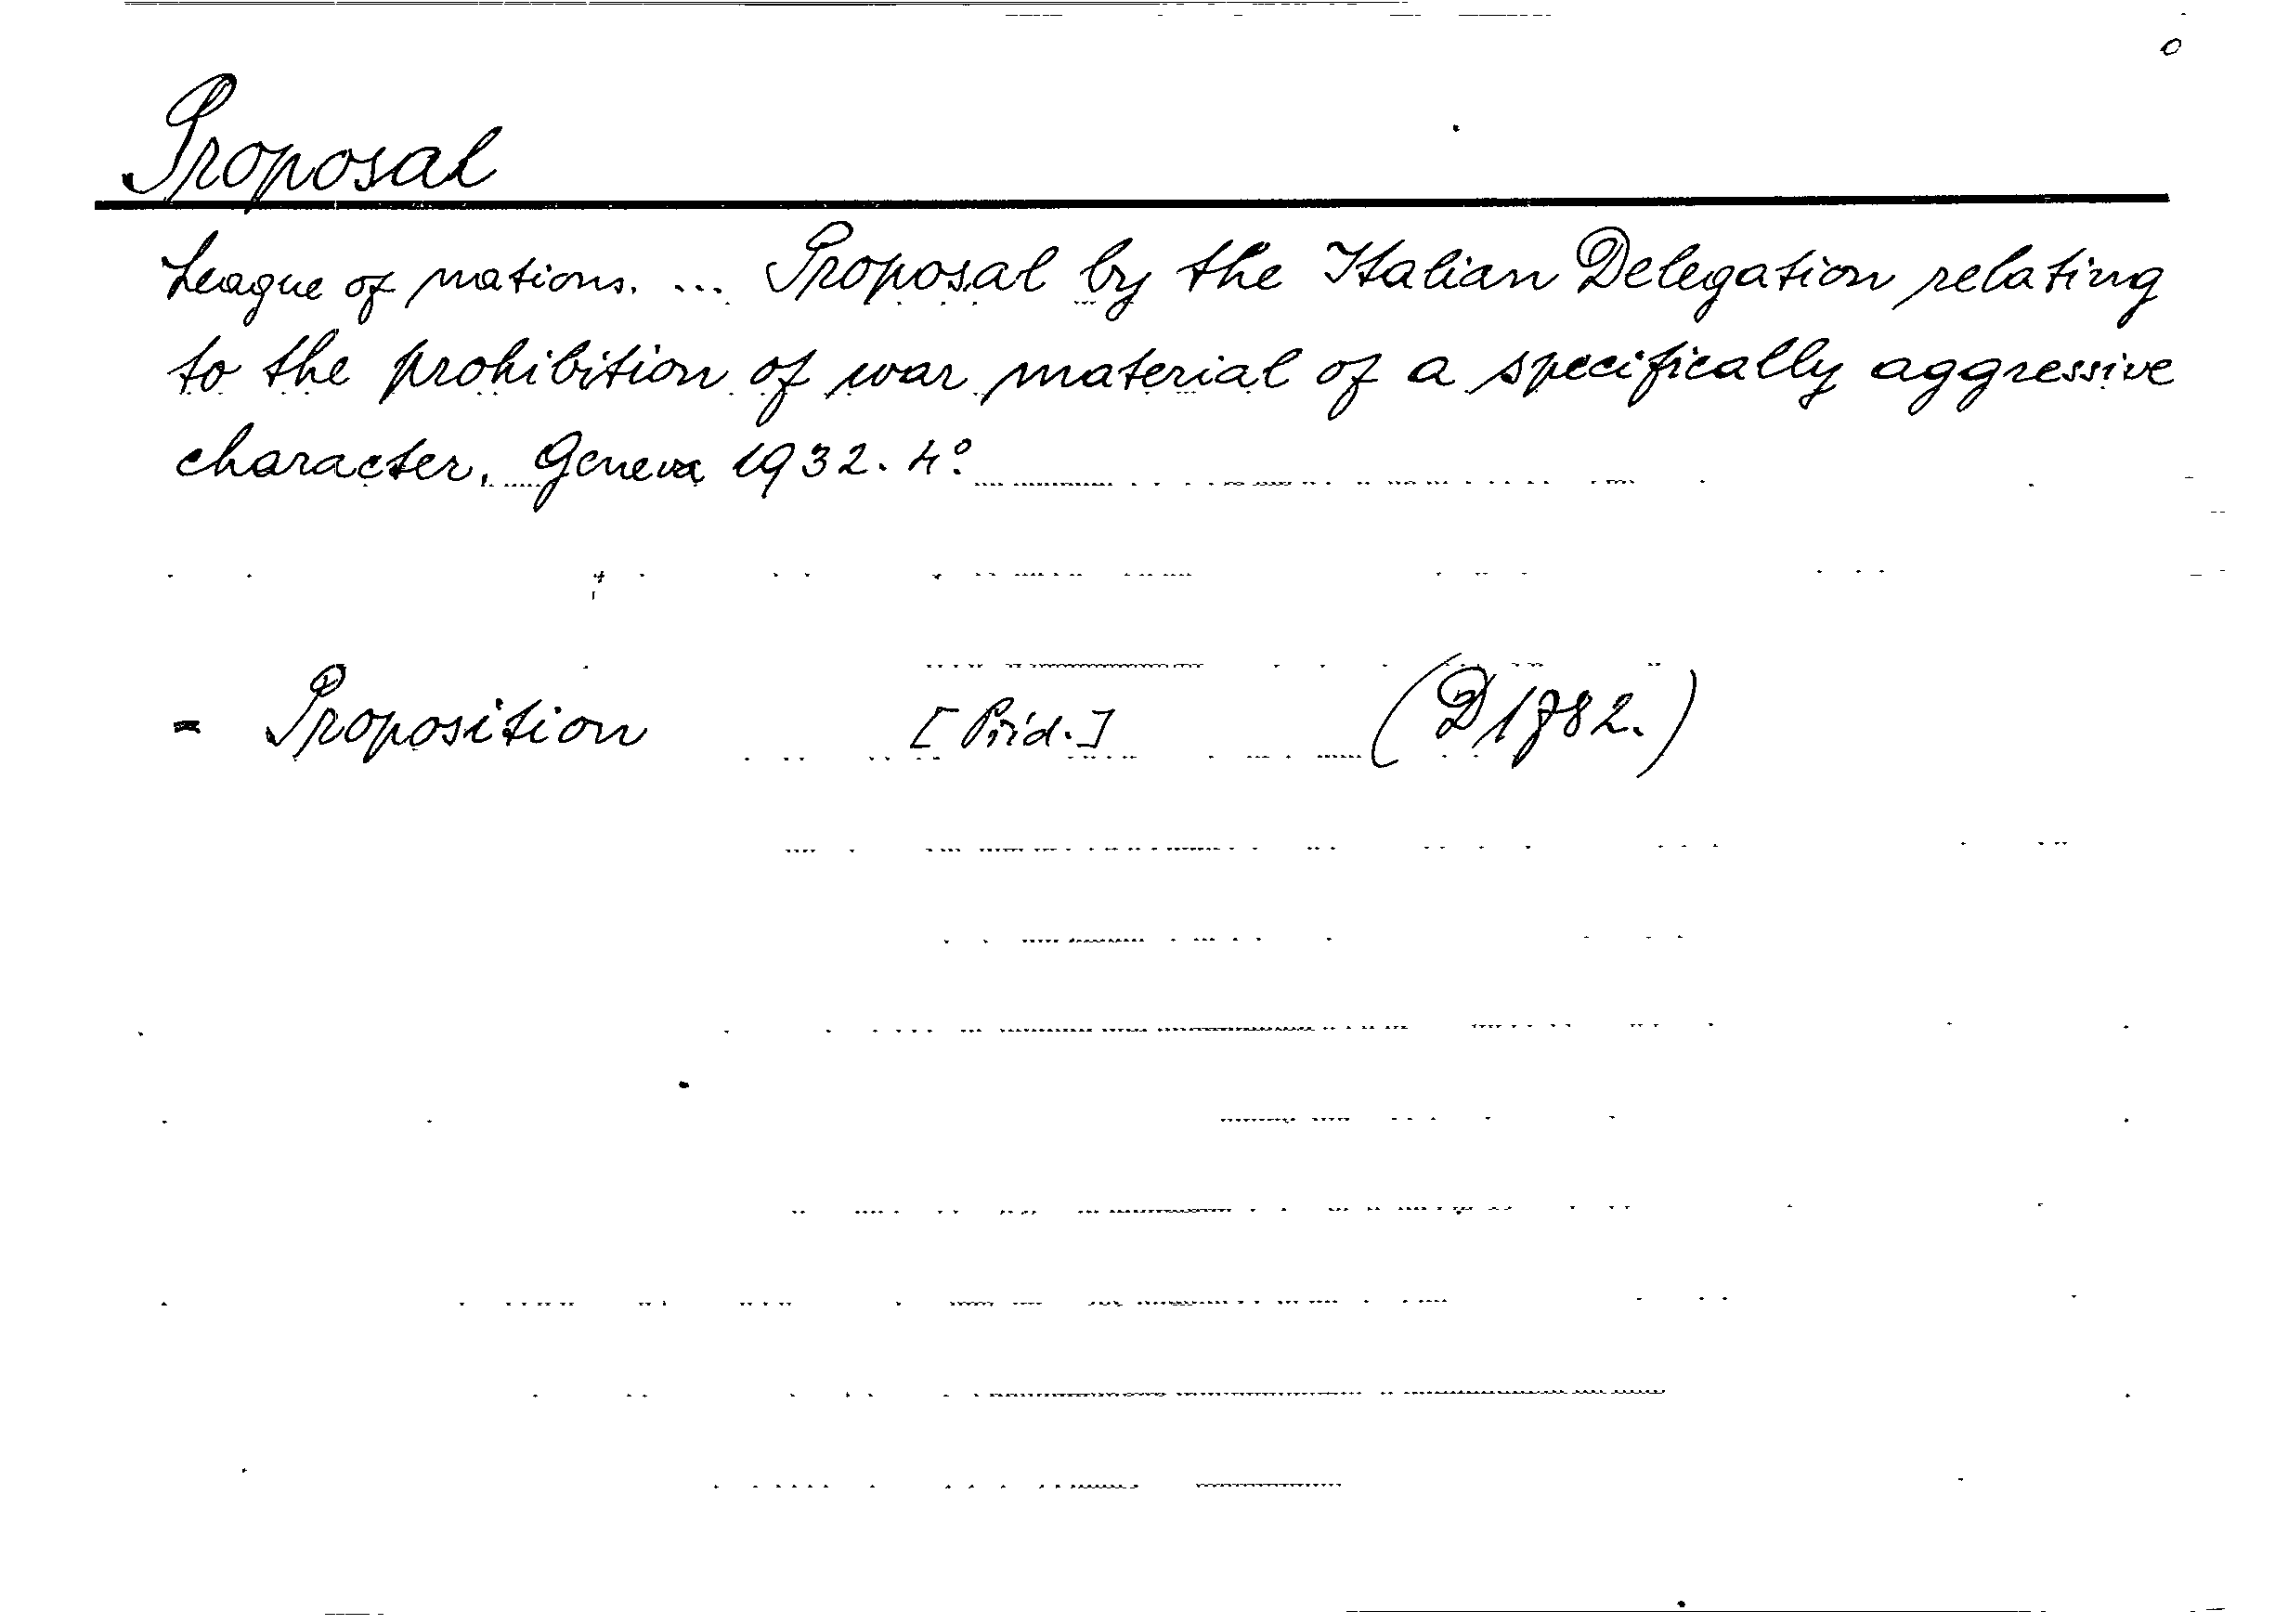 Proposal
League of nations. ... Proposal by the Italian Delegation relating
to the prohibition of war material of a specifically aggressive
character. Geneva 1932. 4°
= Proposition [Příd.] (D 1782.)